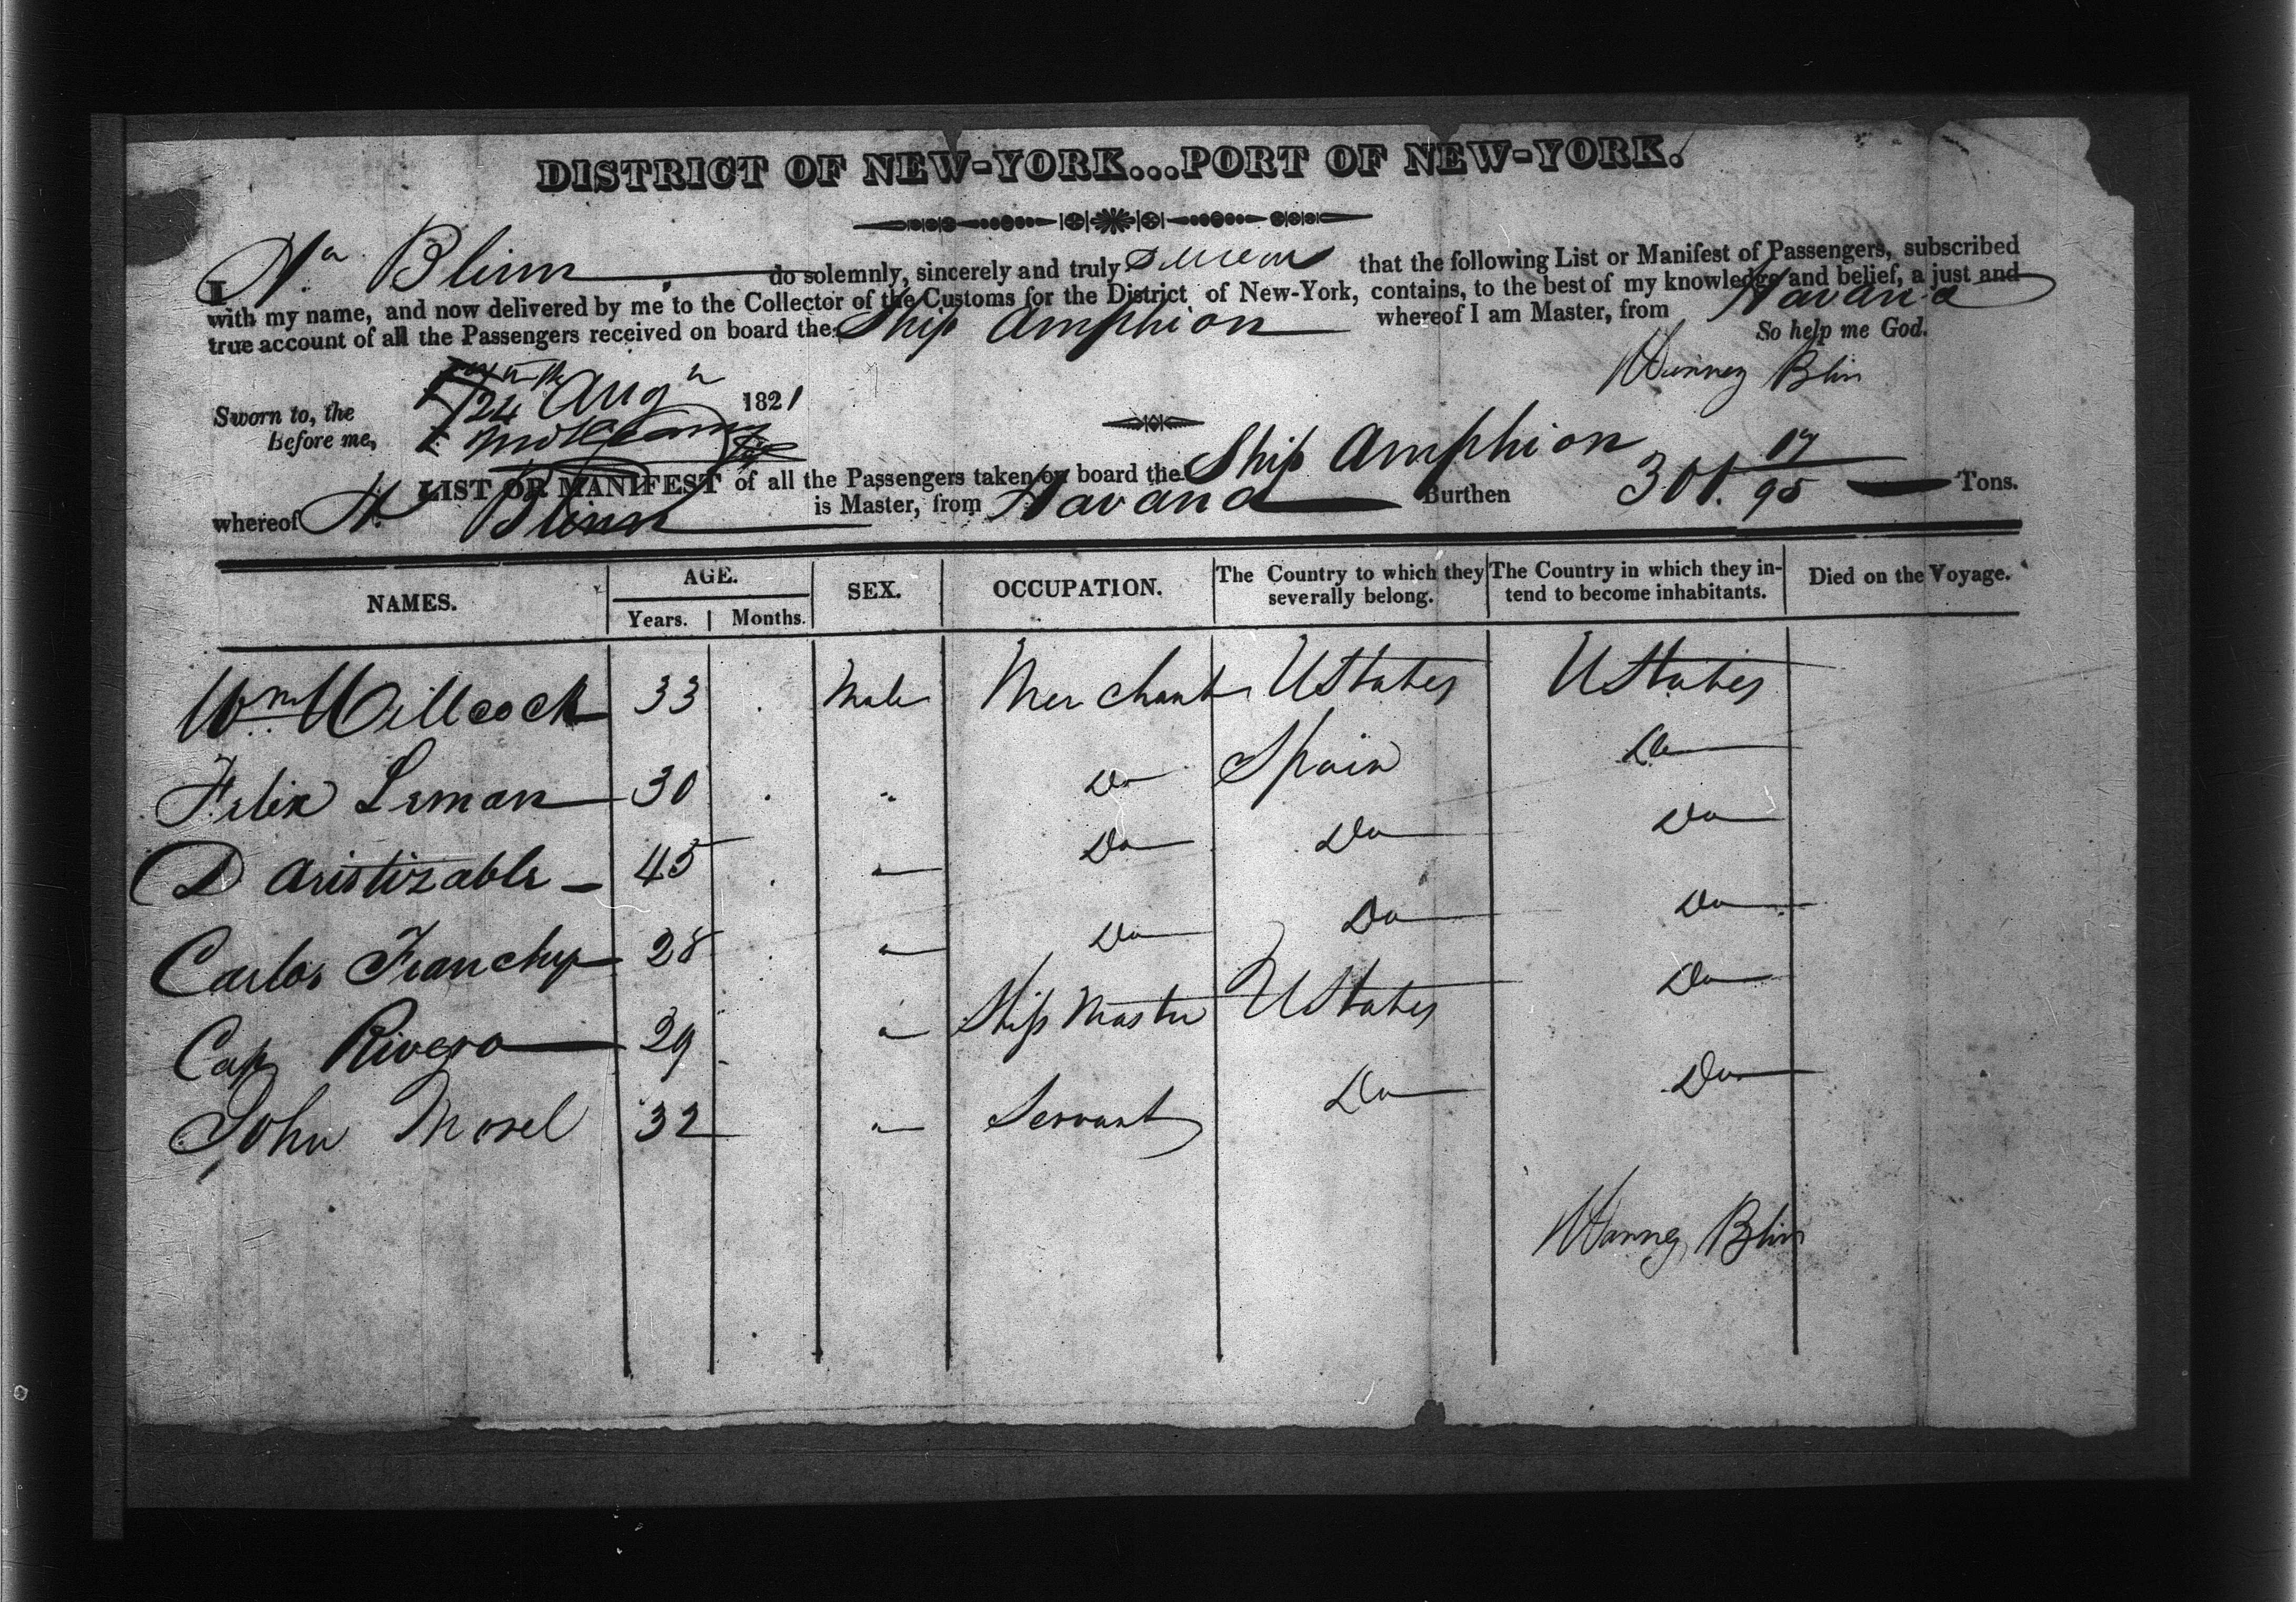 DISTRICT OF NEW-YORK...PORT OF NEW-YORK.
I Ha. Blinn do solemnly, sincerely and truly swear that the following List or Manifest of Passengers, subscribed
with my name, and now delivered by me to the Collector of the Customs for the District of New-York, contains, to the best of my knowledge and belief, a just and
true account of all the Passengers received on board the Ship Amphion whereof I am Master, from Havana
So help me God.
Blin
Sworn to, the 24 Aug 1821
Before me,
LIST OR MANIFEST of all the Passengers taken on board the Ship Amphion
whereof H Blinn is Master, from Havana Burthen 301. 17/95 Tons.
NAMES. AGE. SEX. OCCUPATION. The Country to which they severally belong. The Country in which they intend to become inhabitants. Died on the Voyage.
Years. Months.
Wm. Willcock 33 Male Merchant UStates UStates
Felix Leman 30 " Do Spain Do
D Aristizable 45 " Do Do Do
Carlos Franchy 28 " Do Do Do
Cap Rivera 29 " Ship Master UStates Do
John Morel 32 " Servant Do Do
Blin